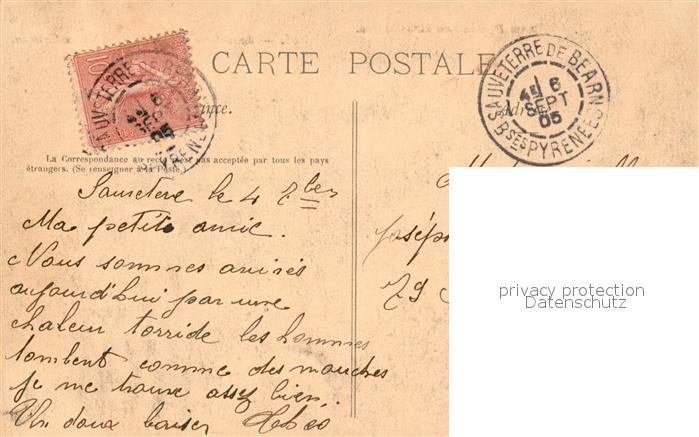 CARTE POSTALE
10
SAUVETERRE DE BEARN
6
SEPT
05
SAUVETERRE DE BEARN
6
SEPT
05
BSES PYRENEES
La Correspondance au recto n'est pas acceptée par tous les pays
étrangers. (Se renseigner à la Poste.)
Sauveterre le 4 7bre
Ma petite amie.
Nous sommes arrivés
aujourd'hui par une
chaleur torride les hommes
tombent comme des mouches
je me trouve assez bien.
Un doux baiser Théo
Josép
79
privacy protection
Datenschutz